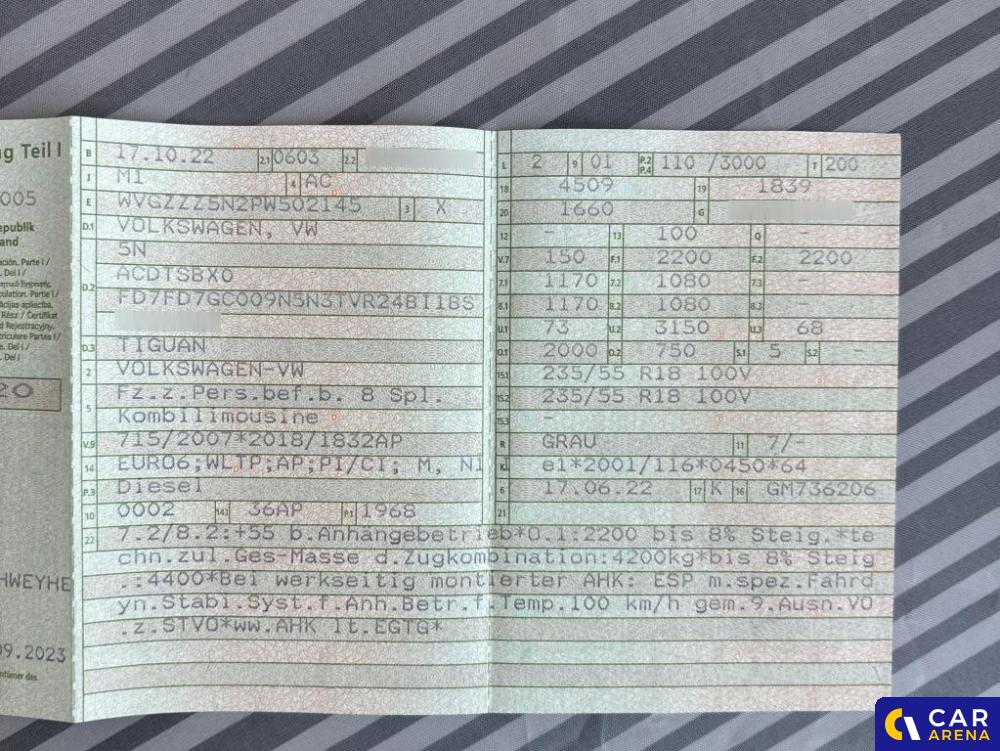 ng Teil I
005
epublik
and
ación. Parte I /
. Del I /
culation. Parte I/
ācijas apliecība.
Rész / Certifikat
d Rejestracyjny.
rticulare Partea I /
e. Del I /
20
HWEYHE
09.2023
B 17.10.22 2.1 0603 2.2
J M1 4 AC
E WVGZZZ5N2PW502145 3 X
D.1 VOLKSWAGEN, VW
5N
D.2 ACDTSBX0
FD7FD7GC009N5N3TVR24BI1BS
D.3 TIGUAN
2 VOLKSWAGEN-VW
5 Fz.z.Pers.bef.b. 8 Spl.
Kombilimousine
V.9 715/2007*2018/1832AP
14 EURO6;WLTP;AP;PI/CI; M, N1
P.3 Diesel
10 0002 14.1 36AP P.1 1968
L 2 9 01 P.2 P.4 110 /3000 T 200
18 4509 19 1839
20 1660 G
12 - 13 100 Q -
V.7 150 F.1 2200 F.2 2200
7.1 1170 7.2 1080 7.3 -
8.1 1170 8.2 1080 8.3 -
U.1 73 U.2 3150 U.3 68
O.1 2000 O.2 750 S.1 5 S.2 -
15.1 235/55 R18 100V
15.2 235/55 R18 100V
15.3 -
R GRAU 11 7/-
K e1*2001/116*0450*64
6 17.06.22 17 K 16 GM736206
21
22 7.2/8.2:+55 b.Anhängebetrieb*O.1:2200 bis 8% Steig.*te
chn.zul.Ges-Masse d.Zugkombination:4200kg*bis 8% Steig
.:4400*Bei werkseitig montierter AHK: ESP m.spez.Fahrd
yn.Stabi.Syst.f.Anh.Betr.f.Temp.100 km/h gem.9.Ausn.VO
.z.STVO*ww.AHK lt.EGTG*
CAR
ARENA